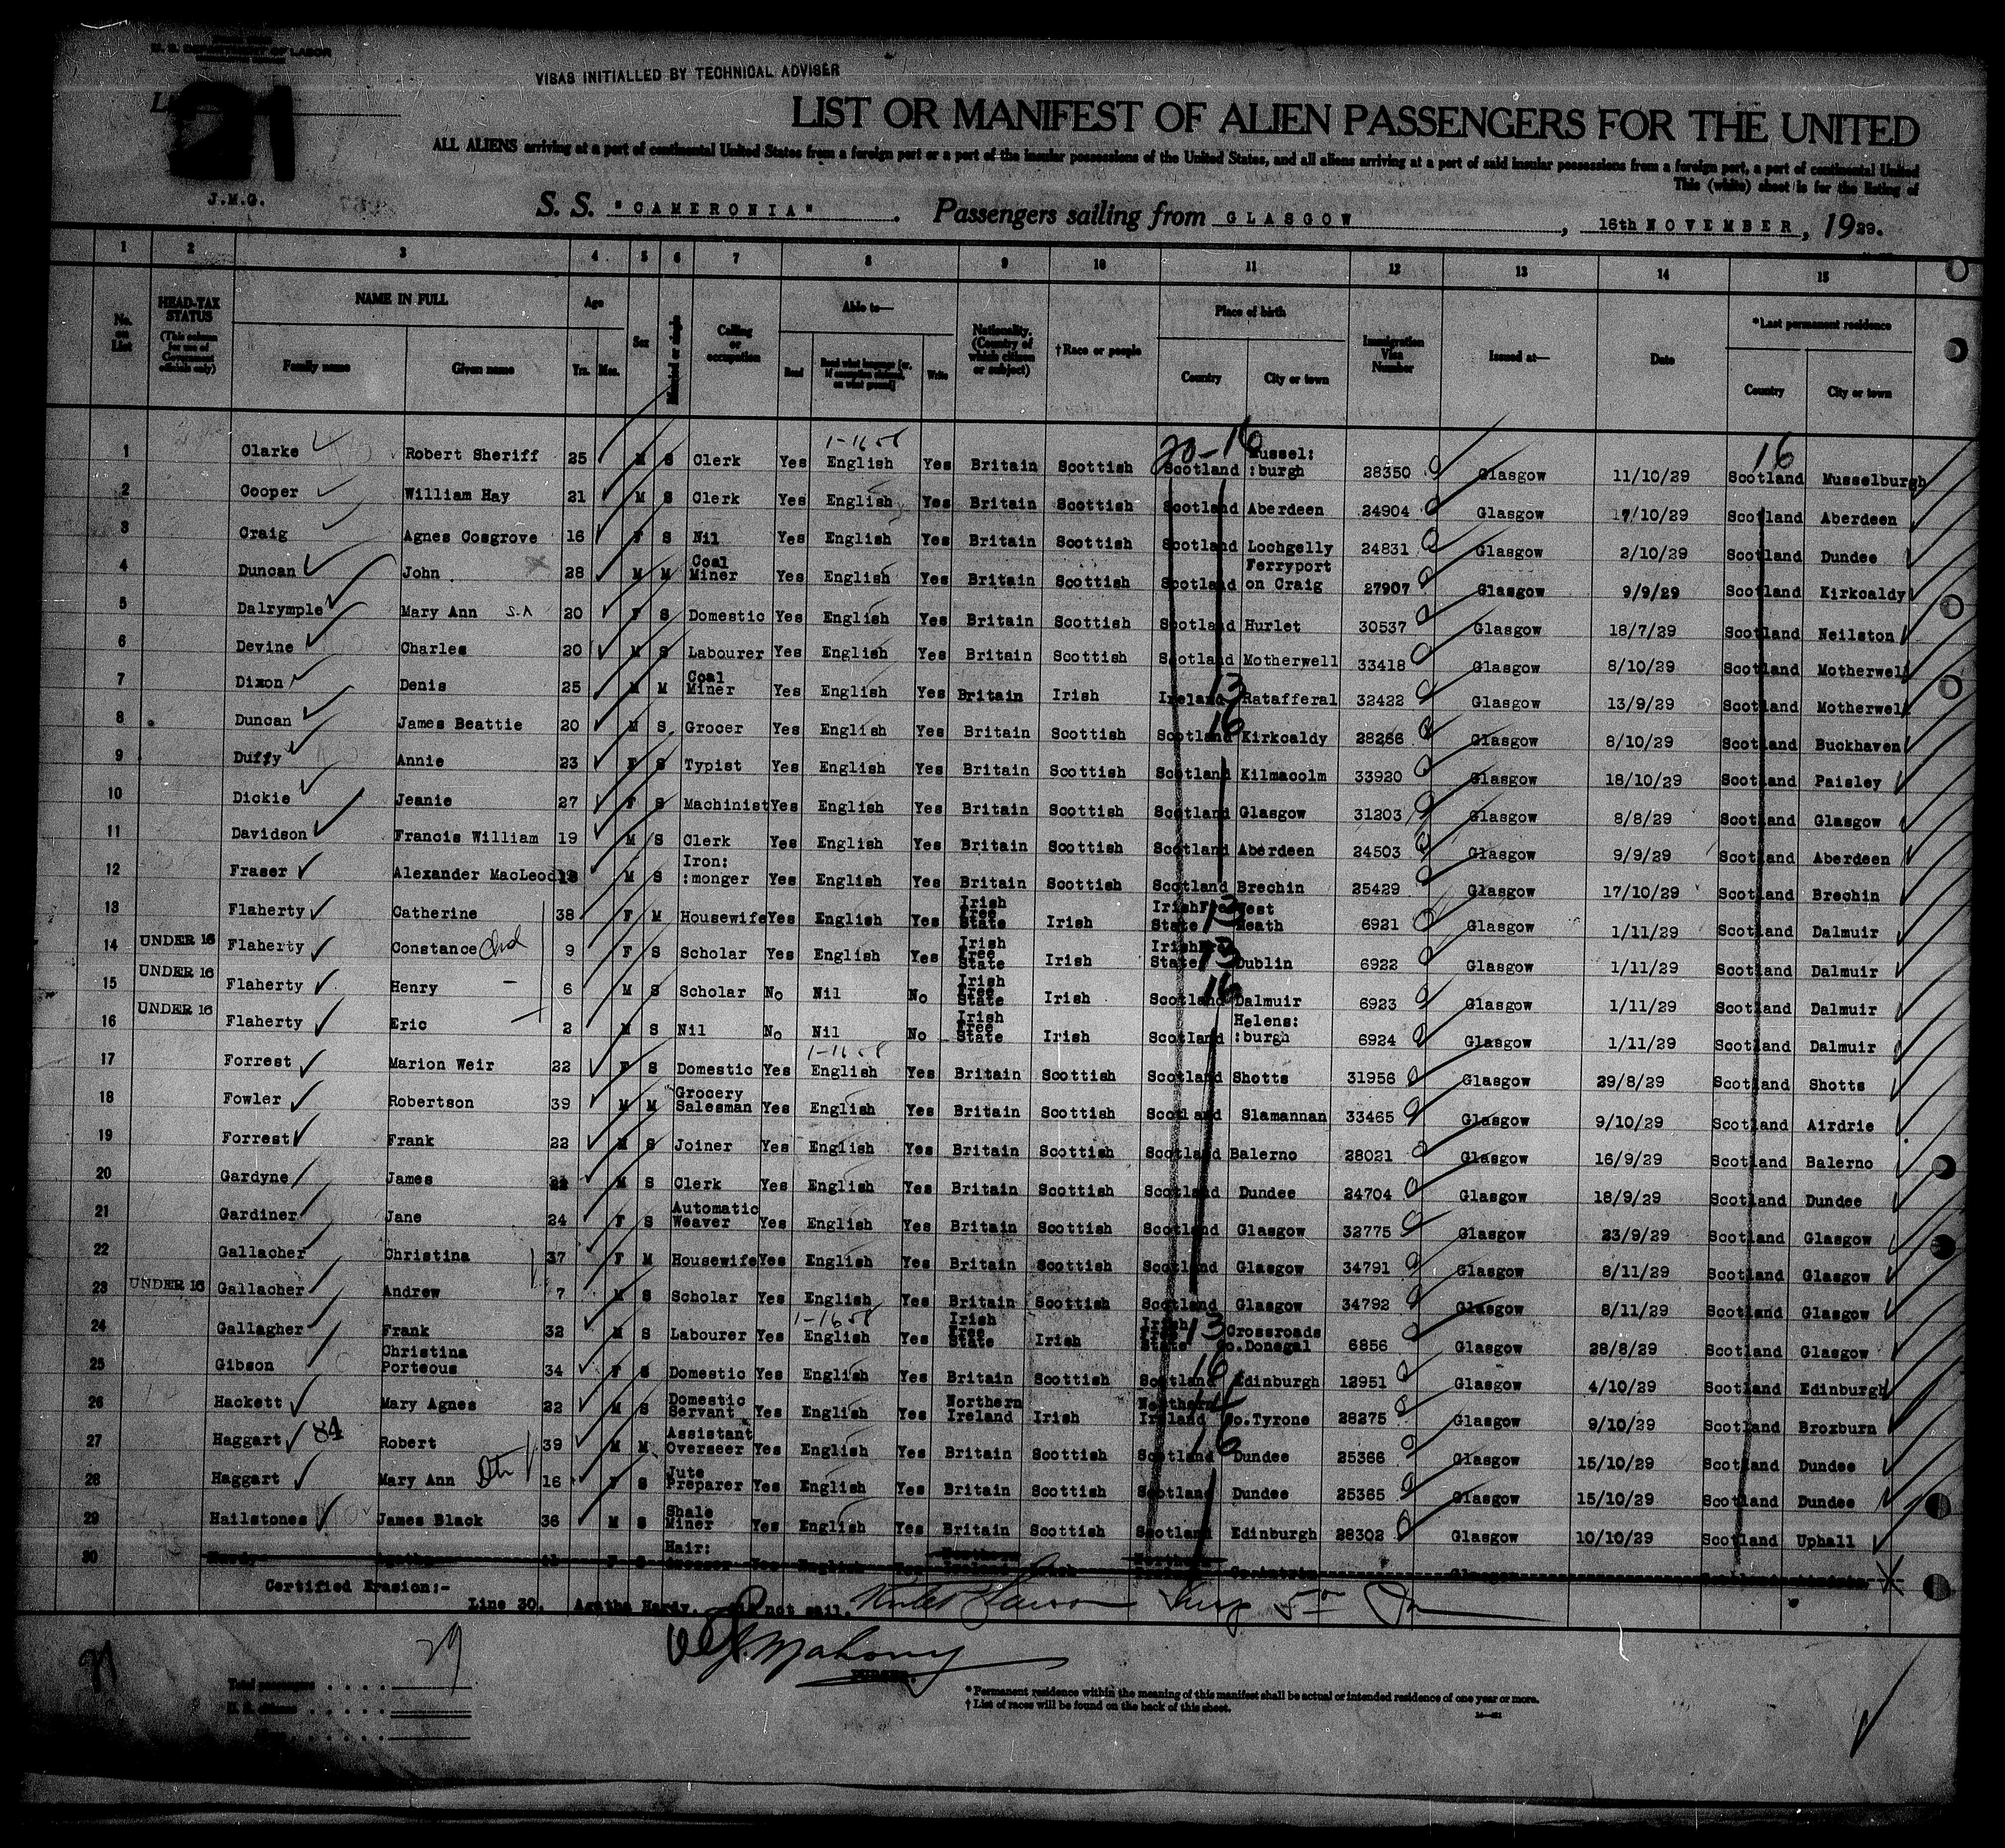 U. S. DEPARTMENT OF LABOR
VISAS INITIALLED BY TECHNICAL ADVISER
21
LIST OR MANIFEST OF ALIEN PASSENGERS FOR THE UNITED
ALL ALIENS arriving at a port of continental United States from a foreign port or a port of the insular possessions of the United States, and all aliens arriving at a port of said insular possessions from a foreign port, a port of continental United
This (white) sheet is for the listing of
J.M.G.
S. S. "CAMERONIA". Passengers sailing from GLASGOW, 16th NOVEMBER, 1929.
1 2 3 4 5 6 7 8 9 10 11 12 13 14 15
No. on List
HEAD-TAX STATUS (This column for use of Government officials only)
NAME IN FULL Family name Given name
Age Yrs. Mos.
Sex
Married or single
Calling or occupation
Able to— Read Read what language [or, if exemption claimed, on what ground] Write
Nationality. (Country of which citizen or subject)
†Race or people
Place of birth Country City or town
Immigration Visa Number
Issued at—
Date
*Last permanent residence Country City or town
1 Clarke Robert Sheriff 25 M S Clerk Yes English Yes Britain Scottish Scotland Mussel: :burgh 28350 Glasgow 11/10/29 Scotland Musselburgh
2 Cooper William Hay 21 M S Clerk Yes English Yes Britain Scottish Scotland Aberdeen 24904 Glasgow 17/10/29 Scotland Aberdeen
3 Craig Agnes Cosgrove 16 F S Nil Yes English Yes Britain Scottish Scotland Lochgelly 24831 Glasgow 2/10/29 Scotland Dundee
4 Duncan John 28 M M Coal Miner Yes English Yes Britain Scottish Scotland Ferryport on Craig 27907 Glasgow 9/9/29 Scotland Kirkcaldy
5 Dalrymple Mary Ann 20 F S Domestic Yes English Yes Britain Scottish Scotland Hurlet 30537 Glasgow 18/7/29 Scotland Neilston
6 Devine Charles 20 M S Labourer Yes English Yes Britain Scottish Scotland Motherwell 33418 Glasgow 8/10/29 Scotland Motherwell
7 Dixon Denis 25 M M Coal Miner Yes English Yes Britain Irish Ireland Ratafferal 32422 Glasgow 13/9/29 Scotland Motherwell
8 Duncan James Beattie 20 M S Grocer Yes English Yes Britain Scottish Scotland Kirkcaldy 28266 Glasgow 8/10/29 Scotland Buckhaven
9 Duffy Annie 23 F S Typist Yes English Yes Britain Scottish Scotland Kilmacolm 33920 Glasgow 18/10/29 Scotland Paisley
10 Dickie Jeanie 27 F S Machinist Yes English Yes Britain Scottish Scotland Glasgow 31203 Glasgow 8/8/29 Scotland Glasgow
11 Davidson Francis William 19 M S Clerk Yes English Yes Britain Scottish Scotland Aberdeen 24503 Glasgow 9/9/29 Scotland Aberdeen
12 Fraser Alexander MacLeod M S Iron: :monger Yes English Yes Britain Scottish Scotland Brechin 25429 Glasgow 17/10/29 Scotland Brechin
13 Flaherty Catherine 38 F M Housewife Yes English Yes Irish Free State Irish Irish Free State West Meath 6921 Glasgow 1/11/29 Scotland Dalmuir
14 UNDER 16 Flaherty Constance 9 F S Scholar Yes English Yes Irish Free State Irish Irish Free State Dublin 6922 Glasgow 1/11/29 Scotland Dalmuir
15 UNDER 16 Flaherty Henry 6 M S Scholar No Nil No Irish Free State Irish Scotland Dalmuir 6923 Glasgow 1/11/29 Scotland Dalmuir
16 UNDER 16 Flaherty Eric 2 M S Nil No Nil No Irish Free State Irish Scotland Helens: :burgh 6924 Glasgow 1/11/29 Scotland Dalmuir
17 Forrest Marion Weir 22 F S Domestic Yes English Yes Britain Scottish Scotland Shotts 31956 Glasgow 29/8/29 Scotland Shotts
18 Fowler Robertson 39 M M Grocery Salesman Yes English Yes Britain Scottish Scotland Slamannan 33465 Glasgow 9/10/29 Scotland Airdrie
19 Forrest Frank 22 M S Joiner Yes English Yes Britain Scottish Scotland Balerno 28021 Glasgow 16/9/29 Scotland Balerno
20 Gardyne James M S Clerk Yes English Yes Britain Scottish Scotland Dundee 24704 Glasgow 18/9/29 Scotland Dundee
21 Gardiner Jane 24 F S Automatic Weaver Yes English Yes Britain Scottish Scotland Glasgow 32775 Glasgow 23/9/29 Scotland Glasgow
22 Gallacher Christina 37 F M Housewife Yes English Yes Britain Scottish Scotland Glasgow 34791 Glasgow 8/11/29 Scotland Glasgow
23 UNDER 16 Gallacher Andrew 7 M S Scholar Yes English Yes Britain Scottish Scotland Glasgow 34792 Glasgow 8/11/29 Scotland Glasgow
24 Gallagher Frank 32 M S Labourer Yes English Yes Irish Free State Irish Irish Free State Crossroads Co.Donegal 6856 Glasgow 28/8/29 Scotland Glasgow
25 Gibson Christina Porteous 34 F S Domestic Yes English Yes Britain Scottish Scotland Edinburgh 12951 Glasgow 4/10/29 Scotland Edinburgh
26 Hackett Mary Agnes 22 M S Domestic Servant Yes English Yes Northern Ireland Irish Northern Ireland Co.Tyrone 28275 Glasgow 9/10/29 Scotland Broxburn
27 Haggart 84 Robert 39 M M Assistant Overseer Yes English Yes Britain Scottish Scotland Dundee 25366 Glasgow 15/10/29 Scotland Dundee
28 Haggart Mary Ann 16 F S Jute Preparer Yes English Yes Britain Scottish Scotland Dundee 25365 Glasgow 15/10/29 Scotland Dundee
29 Hailstones James Black 36 M S Shale Miner Yes English Yes Britain Scottish Scotland Edinburgh 28302 Glasgow 10/10/29 Scotland Uphall
30 Hair:
Certified Erasion:-
Line 30. Agatha Hardy. Did not sail.
Mahony
PURSER.
Total passengers 29
U. S. citizens
* Permanent residence within the meaning of this manifest shall be actual or intended residence of one year or more.
† List of races will be found on the back of this sheet.